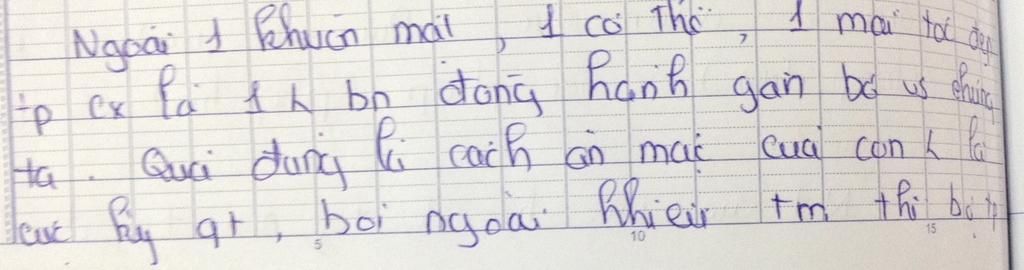 Ngoài 1 khuôn mặt, 1 cơ thể, 1 mái tóc đẹp
-p cx là 1 k bn đồng hành gắn bó vs chúng
ta. Quả đúng là cách ăn mặc của con k là
cực kỳ qt, bởi ngoài khiếu tm thì bộ